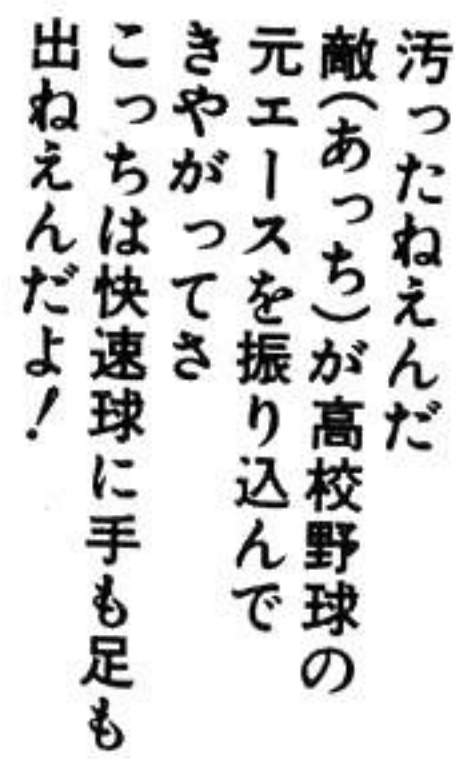 汚ったねえんだ
敵(あっち)が高校野球の
元エースを振り込んで
きやがってさ
こっちは快速球に手も足も
出ねえんだよ!